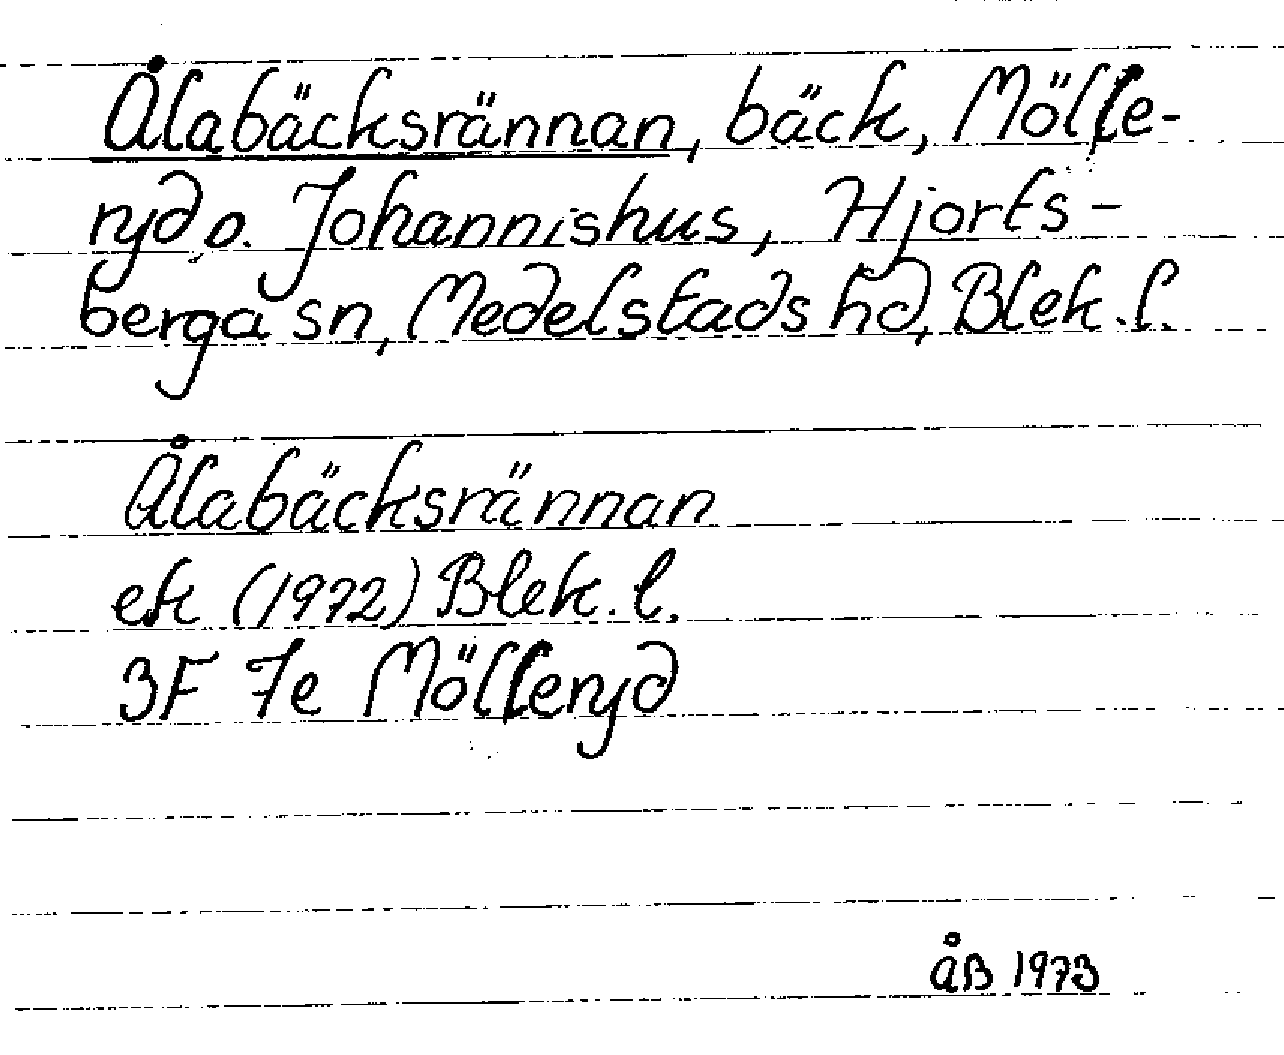 Ålabäcksrännan, bäck, Mölle-
ryd o. Johannishus, Hjorts-
berga sn, Medelstads hd, Blek. l.
Ålabäcksrännan
ek (1972) Blek. l.
3F 7e Mölleryd
åB 1973